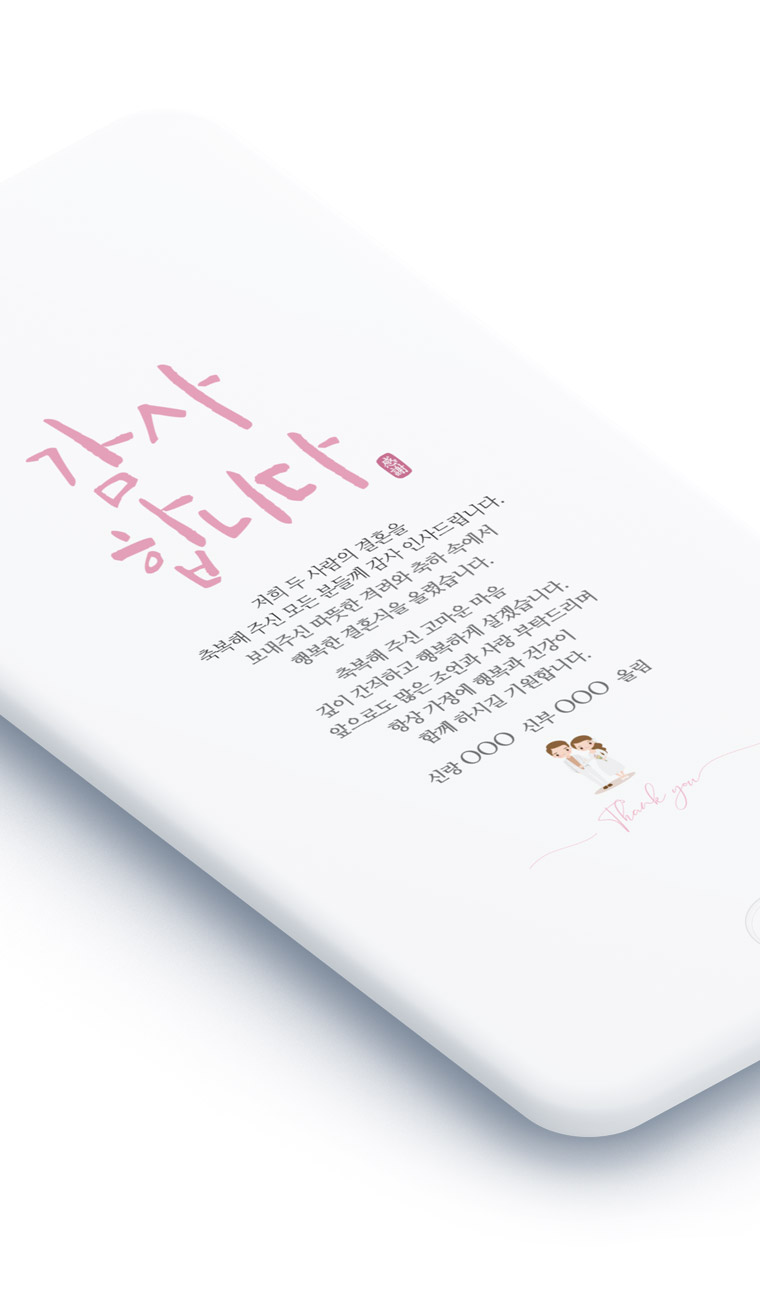 감사
합니다
感謝
저희 두 사람의 결혼을
축복해 주신 모든 분들께 감사 인사드립니다.
보내주신 따뜻한 격려와 축하 속에서
행복한 결혼식을 올렸습니다.
축복해 주신 고마운 마음
깊이 간직하고 행복하게 살겠습니다.
앞으로도 많은 조언과 사랑 부탁드리며
항상 가정에 행복과 건강이
함께 하시길 기원합니다.
신랑 OOO 신부 OOO 올림
Thank you